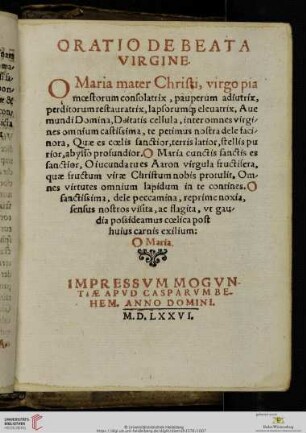 ORATIO DE BEATA
VIRGINE.
O Maria mater Christi, virgo pia
mœstorum consolatrix, pauperum adiutrix,
perditorum restauratrix, lapsorumq́; eleuatrix, Aue
mundi Domina, Deitatis cellula, inter omnes virgi-
nes omnium castissima, te petimus nostra dele faci-
nora, Quæ es cœlis sanctior, terris latior, stellis pu
rior, abysso profundior. O Maria cunctis sanctis es
sanctior, O iucunda tu es Aaron virgula fructifera,
quæ fructum vitæ Christum nobis protulit. Om-
nes virtutes omnium lapidum in te contines. O
sanctissima, dele peccamina, reprime noxia,
sensus nostros visita, ac flagita, vt gau-
dia possideamus cœlica post
huius carnis exilium:
O Maria.
IMPRESSVM MOGVN-
TIÆ APVD CASPARVM BE-
HEM. ANNO DOMINI.
M.D.LXXVI.
UNIVERSITÄTS-
BIBLIOTHEK
HEIDELBERG
© Universitätsbibliothek Heidelberg